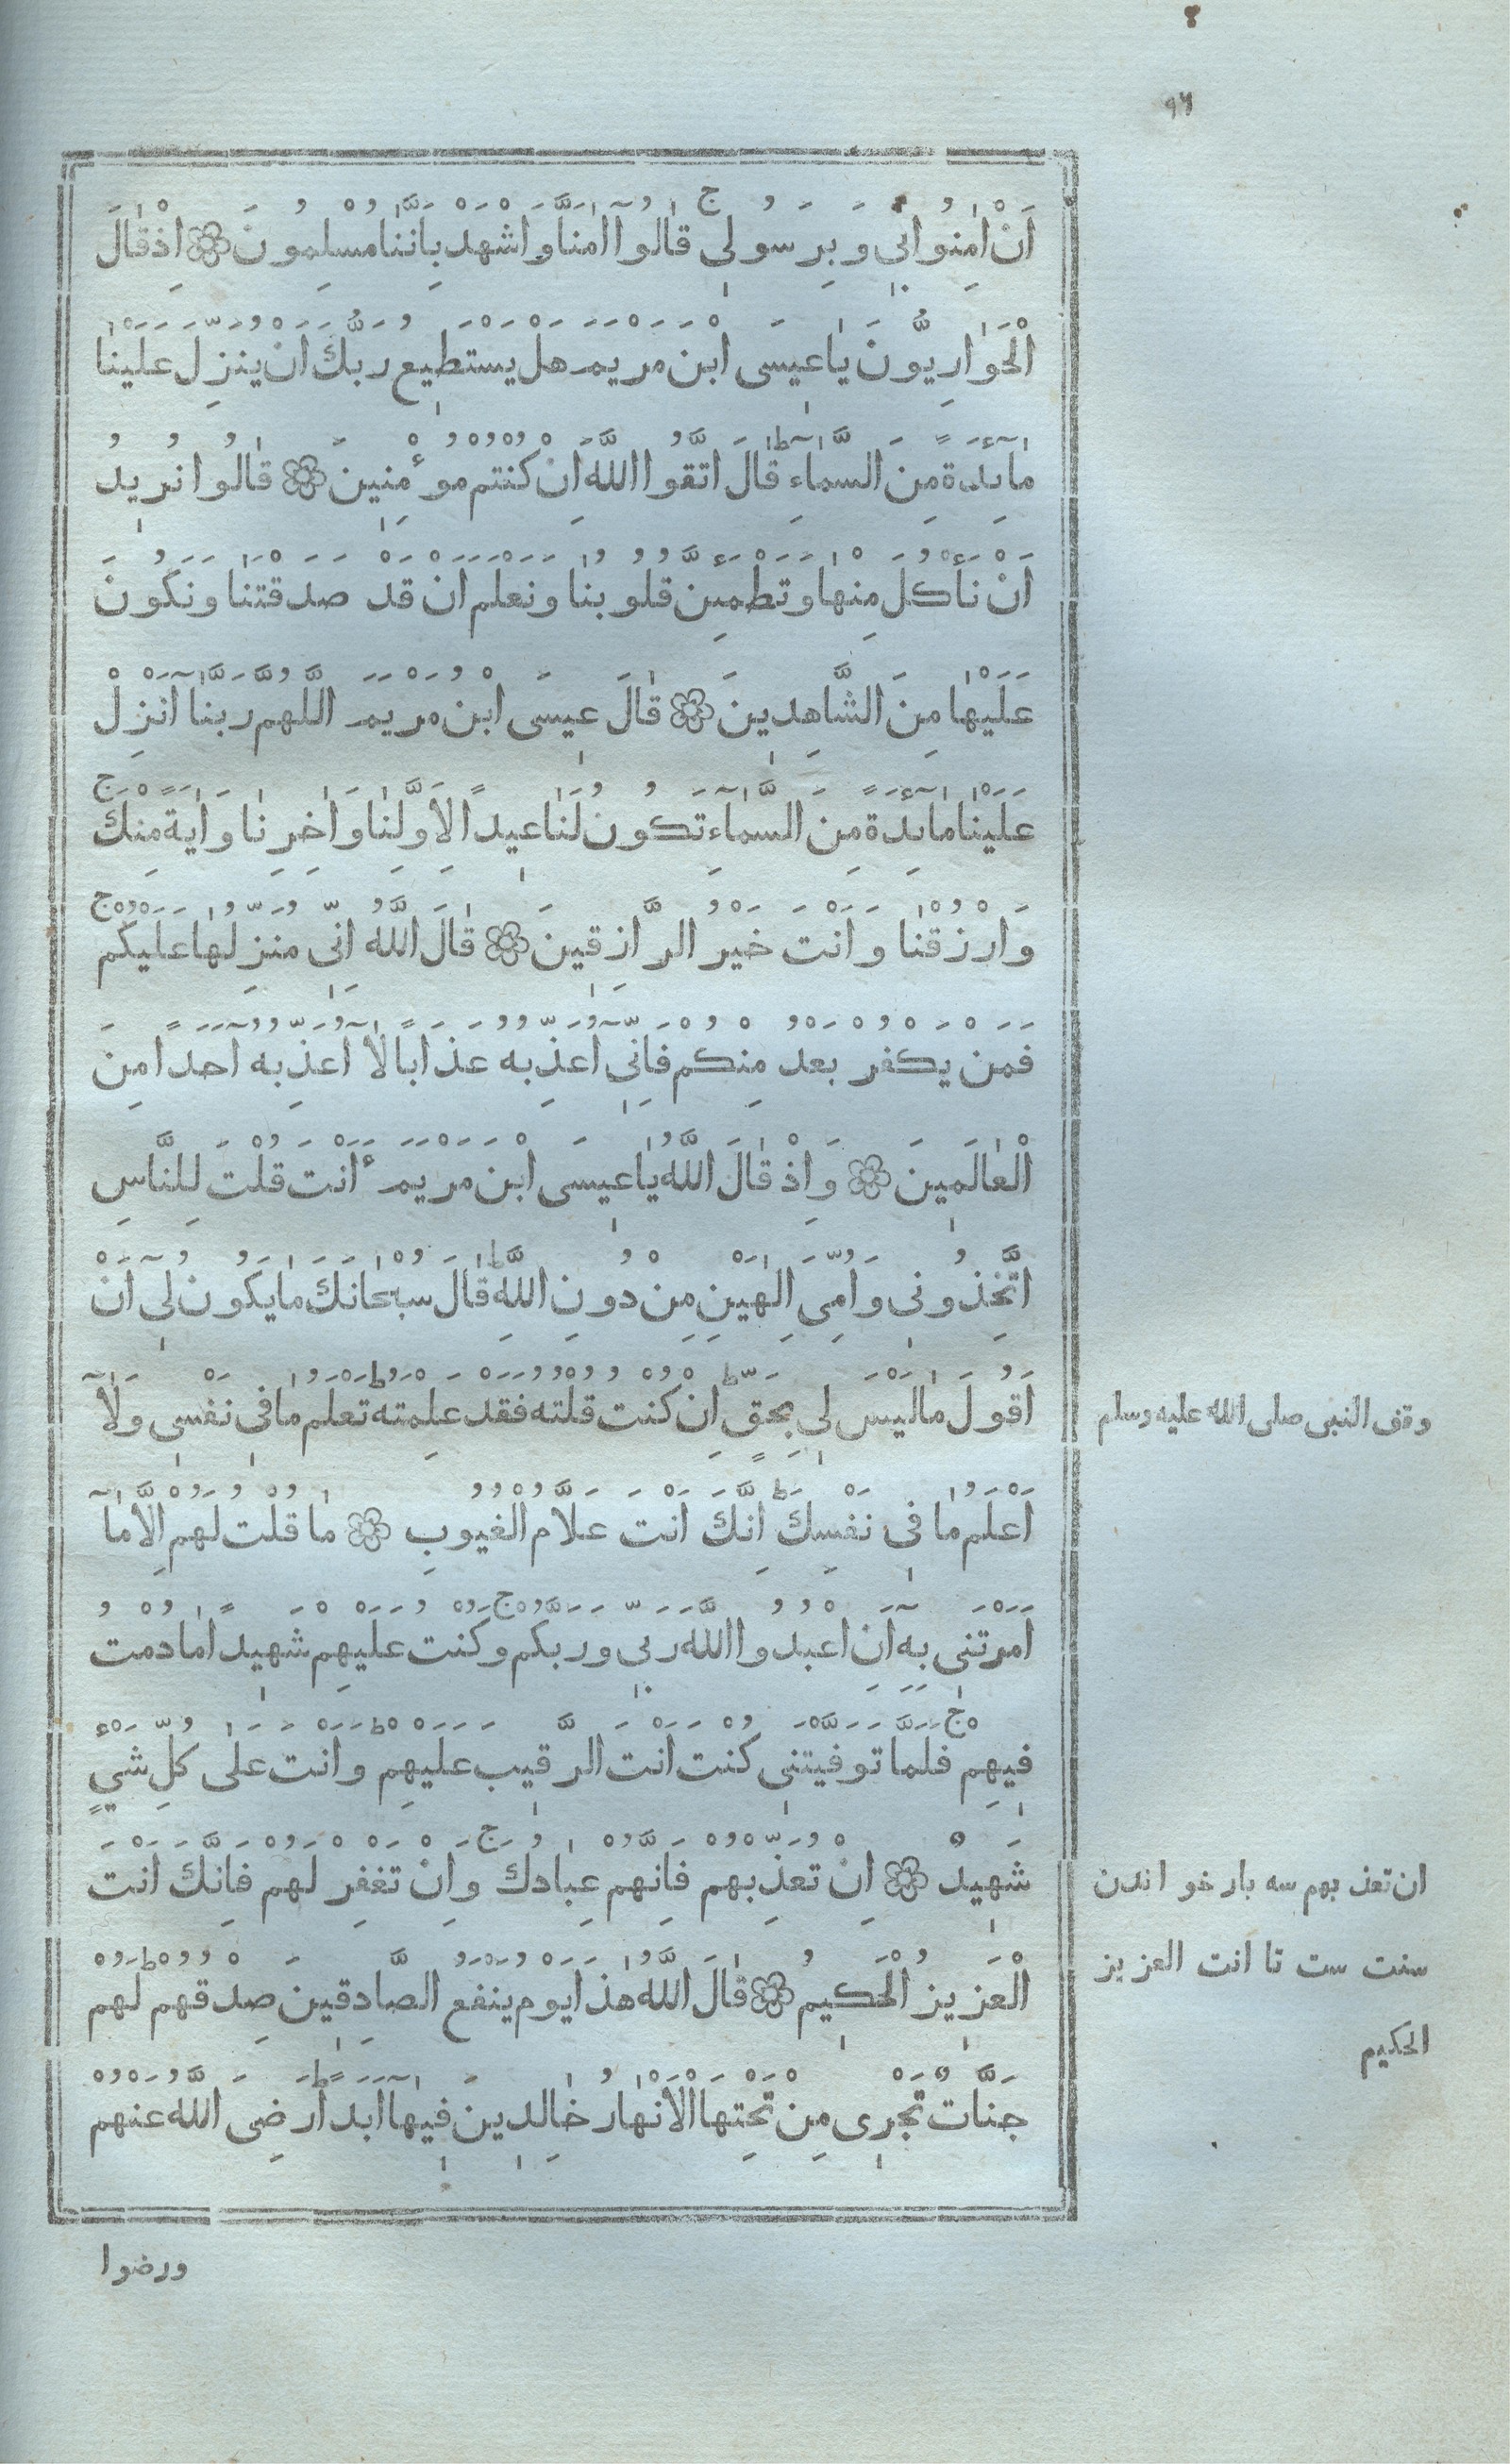 ٩٦
اَنْ اٰمِنُوا بِٖى وَ بِرَسُولِٖى ج قٰالُوٓا اٰمَنَّا وَاشْهَدْ بِاَنَّنٰا مُسْلِمُونَ ۞ اِذْ قٰالَ
الْحَوٰارِيُّونَ يٰا عِٖيسَى ابْنَ مَرْيَمَ هَلْ يَسْتَطِٖيعُ رَبُّكَ اَنْ يُنَزِّلَ عَلَيْنٰا
مٰٓائِدَةً مِنَ السَّمٰٓاءِ ط قٰالَ اتَّقُوا اللَّهَ اِنْ كُنْتُمْ مُؤْمِنِٖينَ ۞ قٰالُوا نُرِٖيدُ
اَنْ نَأْكُلَ مِنْهٰا وَ تَطْمَئِنَّ قُلُوبُنٰا وَ نَعْلَمَ اَنْ قَدْ صَدَقْتَنٰا وَ نَكُونَ
عَلَيْهٰا مِنَ الشَّاهِدِٖينَ ۞ قٰالَ عِٖيسَى ابْنُ مَرْيَمَ اللَّهُمَّ رَبَّنٰٓا اَنْزِلْ
عَلَيْنٰا مٰٓائِدَةً مِنَ السَّمٰٓاءِ تَكُونُ لَنٰا عِٖيدًا لِاَوَّلِنٰا وَ اٰخِرِنٰا وَ اٰيَةً مِنْكَ ج
وَ ارْزُقْنٰا وَ اَنْتَ خَيْرُ الرَّازِقِٖينَ ۞ قٰالَ اللَّهُ اِنِّٖى مُنَزِّلُهٰا عَلَيْكُمْ ج
فَمَنْ يَكْفُرْ بَعْدُ مِنْكُمْ فَاِنِّٖٓى اُعَذِّبُهُ عَذَابًا لٰٓا اُعَذِّبُهُٓ اَحَدًا مِنَ
الْعٰالَمِٖينَ ۞ وَ اِذْ قٰالَ اللَّهُ يٰا عِٖيسَى ابْنَ مَرْيَمَ ءَاَنْتَ قُلْتَ لِلنَّاسِ
اتَّخِذُونِٖى وَ اُمِّىَ اِلٰهَيْنِ مِنْ دُونِ اللَّهِ ط قٰالَ سُبْحٰانَكَ مٰا يَكُونُ لِٖٓى اَنْ
اَقُولَ مٰا لَيْسَ لِٖى بِحَقٍّ ط اِنْ كُنْتُ قُلْتُهُ فَقَدْ عَلِمْتَهُ ط تَعْلَمُ مٰا فِٖى نَفْسِٖى وَ لٰٓا
اَعْلَمُ مٰا فِٖى نَفْسِكَ ط اِنَّكَ اَنْتَ عَلَّامُ الْغُيُوبِ ۞ مٰا قُلْتُ لَهُمْ اِلَّا مٰٓا
اَمَرْتَنِى بِهِٓ اَنِ اعْبُدُوا اللَّهَ رَبِّٖى وَ رَبَّكُمْ ج وَ كُنْتُ عَلَيْهِمْ شَهِٖيدًا مٰا دُمْتُ
فِٖيهِمْ ج فَلَمَّا تَوَفَّيْتَنِٖى كُنْتَ اَنْتَ الرَّقِٖيبَ عَلَيْهِمْ ط وَ اَنْتَ عَلٰى كُلِّ شَىْءٍ
شَهِٖيدٌ ۞ اِنْ تُعَذِّبْهُمْ فَاِنَّهُمْ عِبٰادُكَ ج وَ اِنْ تَغْفِرْ لَهُمْ فَاِنَّكَ اَنْتَ
الْعَزِٖيزُ الْحَكِٖيمُ ۞ قٰالَ اللَّهُ هٰذَا يَوْمُ يَنْفَعُ الصَّادِقِٖينَ صِدْقُهُمْ ط لَهُمْ
جَنَّاتٌ تَجْرِٖى مِنْ تَحْتِهَا الْاَنْهٰارُ خٰالِدِٖينَ فِٖيهٰٓا اَبَدًا ط رَضِىَ اللَّهُ عَنْهُمْ
وقف النبى صلى الله عليه وسلم
ان تعذبهم سه بار خواندن
سنت ست تا انت العزيز
الحكيم
ورضوا